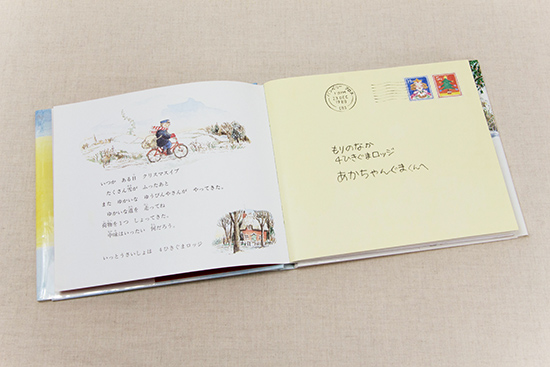 いつか ある日 クリスマスイブ
たくさん雪が ふったあと
また ゆかいな ゆうびんやさんが やってきた。
ゆかいな道を 走ってね
荷物を1つ しょってきた。
中味はいったい 何だろう。
いっとうさいしょは 4ひきぐまロッジ
もりのなか
4ひきぐまロッジ
あかちゃんぐまくんへ